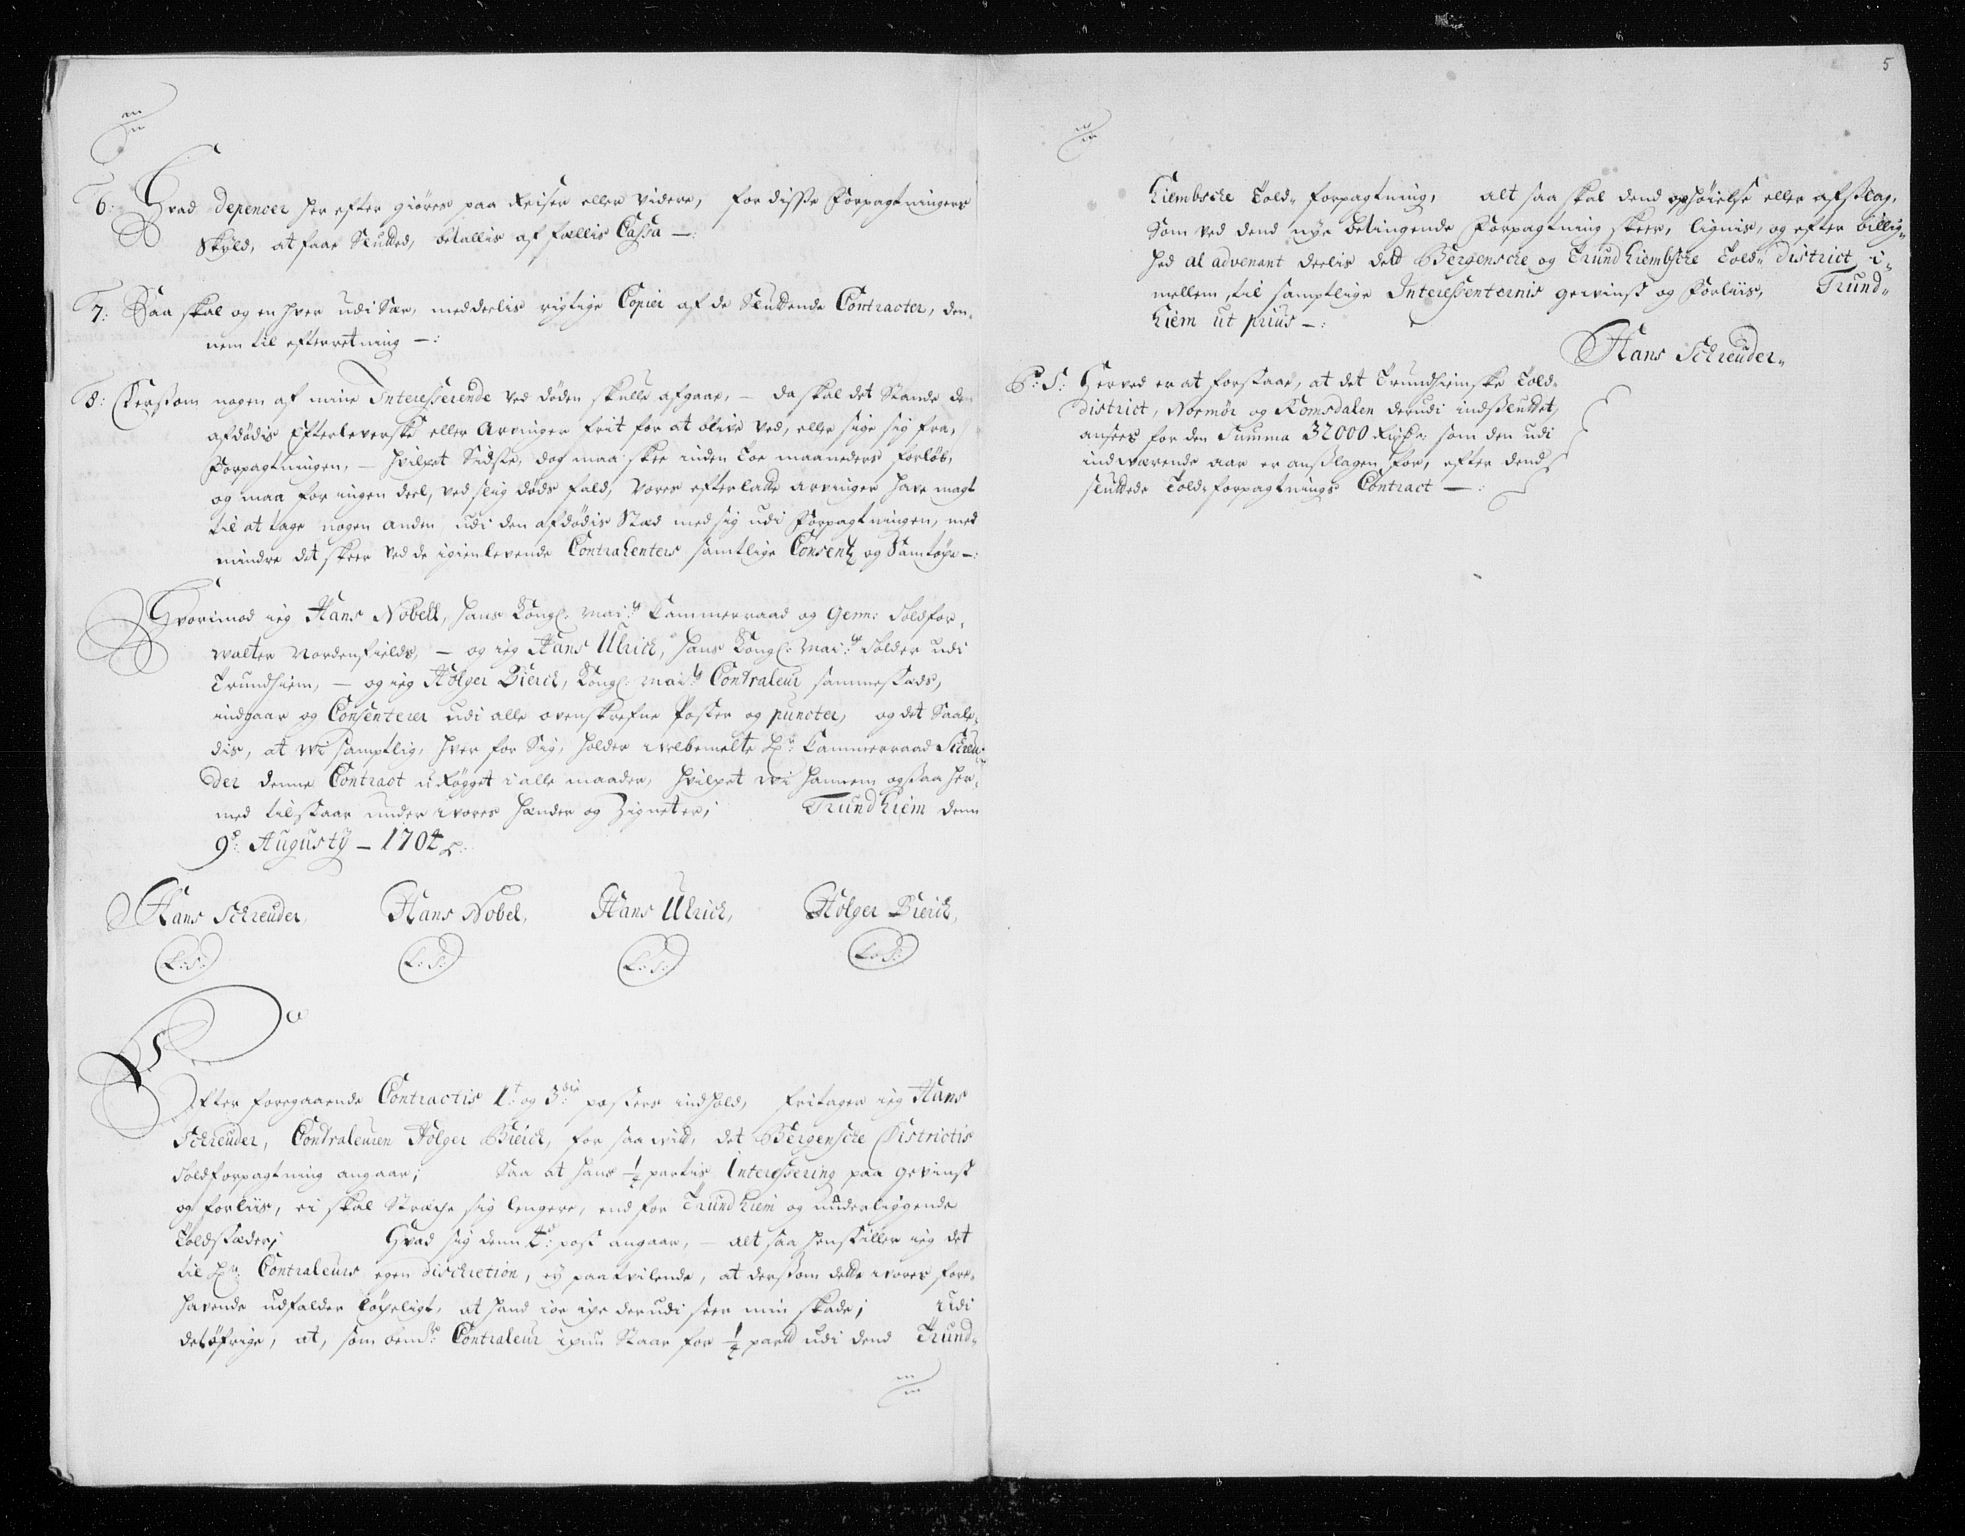 6: Hvad depencer her efter giøres paa Reiser eller videre, for disse Forpagtningers
skyld, at faae slutted, betallis af fællis Cassa —:
7: Saa skal og en hver udi Sær, meddeelis rigtige Copier af de Sluttende Contracter, den-
nem til efterretning —:
8: Dersom nogen af mine Interesserende ved døden skulle afgaae, — da skal det Stande den
afdødis Efterleverske eller Arvinger frit for at blive ved, eller sige sig fra,
Forpagtningen, — hvilket Sidste, dog maa skee inden toe maaneders forløb,
og maa for ingen deel, ved slig døds fald, vores efterlatte arvinger have magt
til at tage nogen anden udi den afdødis Stæd med sig udi Forpagtningen, med
mindre det skeer ved de igienlevende Contrahenters samtlige Consentz og Samtøche —:
Hvorimod ieg Hans Nobell, hans Kongl: Mai:ts Cammerraad og Genn: Toldfor-
walter Nordenfields, — og ieg Hans Ulrich, hans Kongl: Mai:ts Tolder udi
Trundhiem, — og ieg Holger Bierch, Kongl: Mai:ts Contraleur sammestæds,
indgaar og Consenterer udi alle ovenskrefne Poster og puncter, og det Saale-
dis, at wi samptlig, hver for Sig, holder welbemelte Hr: Cammerraad Schreu-
der denne Contract u-rygget i alle maader, hvilket wi hannem ogsaa her-
med tilstaar under wores hænder og Zigneter; Trundhiem denn
9de: Augusty — 1704
Hans Schreuder, Hans Nobel, Hans Ulrich, Holger Bierch,
L:S: L:S: L:S: L:S:
Efter foregaaende Contractis 1t: og 3die: posters indhold, fritager ieg Hans
Schreuder, Contraleuren Holger Bierch, for saa wiit, det Bergensche Districtis
Toldforpagtning angaar; Saa at hans ¼ partis Interessering paa gevinst
og forliis, ei skal Stræche sig lengere, end for Trundhiem og underliggende
Toldstæder; Hvad sig denn 4de: post angaar, — alt saa henstiller ieg det
til Hr: Contraleurs egen discretion, ey paatvilende, at dersom dette wores fore-
havende udfalder løcheligt, at hand ioe iche derudi seer min skade; Udi
det øfrige, at, som bem:te Contraleur ichun Staar for ¼ part udi dend Trund-
5
hiembsche Told-forpagtning, alt saa skal dend ophøielse eller afslag,
Som ved dend nye betingende Forpagtning skeer, lignis, og efter billig-
hed al advenant deelis dett Bergensche og Trundhiembsche Told-district i-
mellem, til samptlige Interessenternis gewinst og Forliis, Trund-
hiem ut prius —:
Hans Schreuder
P: S: Herved er at forstaae, at det Trundhiemske Told-
district, Normør og Romsdalen derudi indsluttet,
ansees for den Summa 32000 Rixdr: som den udi
indwærende aar er anslagen for, efter dend
sluttede Told-forpagtnings Contract —: